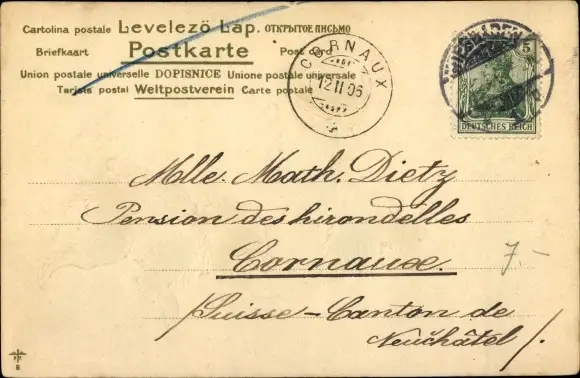 Cartolina postale Levelező Lap. ОТКРЫТОЕ ПИСЬМО
Briefkaart Postkarte Post card
Union postale universelle DOPISNICE Unione postale universale
Tarjeta postal Weltpostverein Carte postale
CORNAUX
12 II 06
WIESBADEN
5
DEUTSCHES REICH
Mlle. Math. Dietz
Pension des hirondelles
Cornaux.
7.-
/Suisse-Canton de
Neuchâtel/.
8